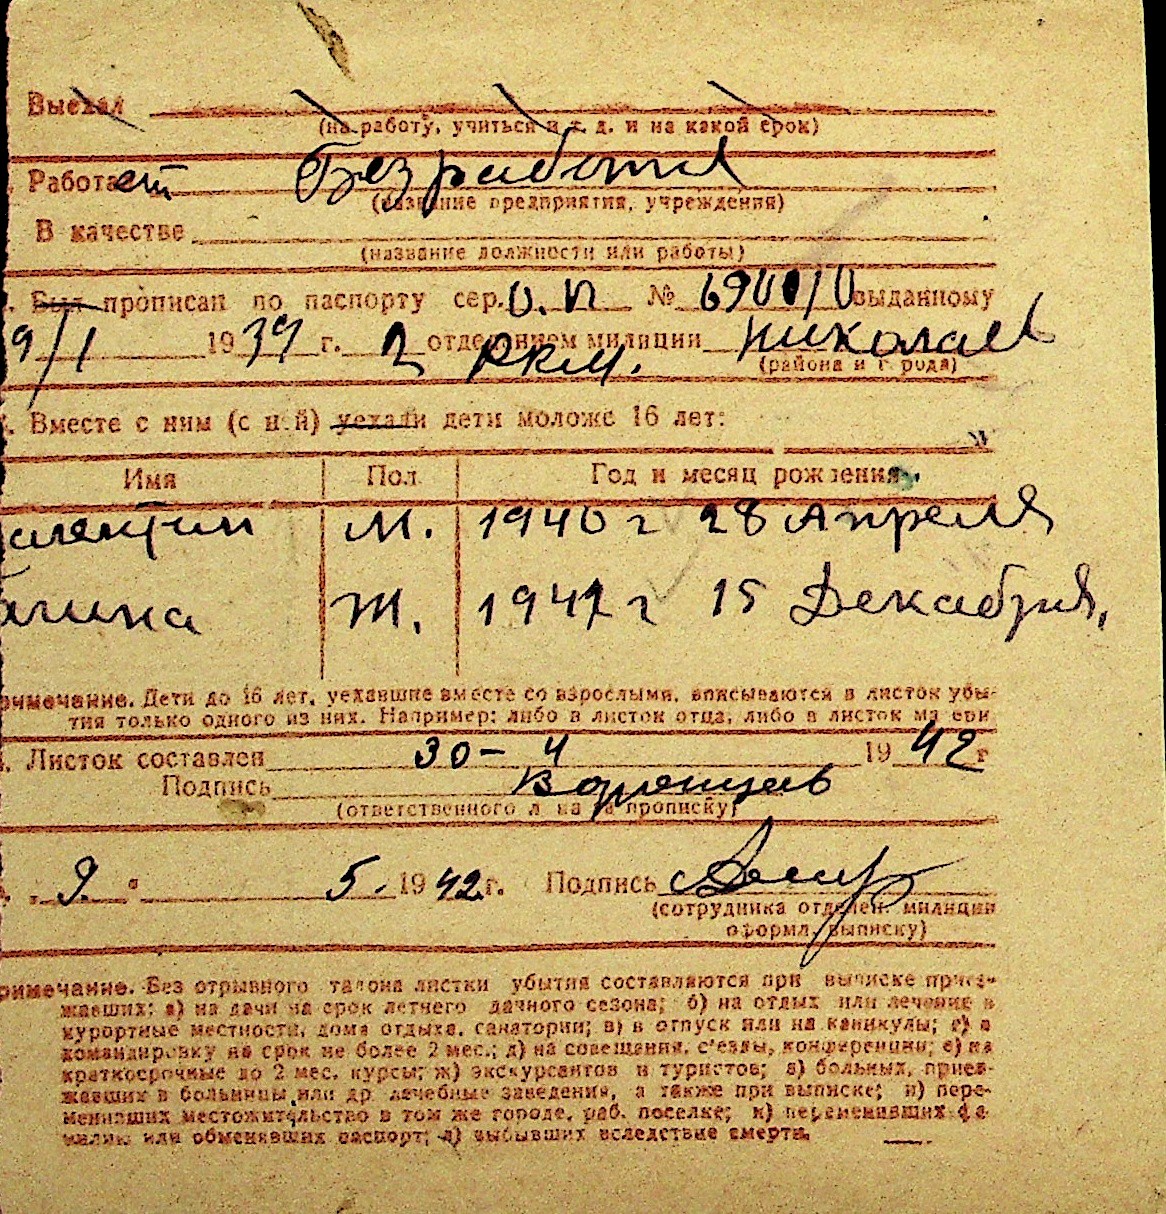 Выехал
(на работу, учиться и т. д. и на какой срок)
Работает Без работы
(название предприятия, учреждения)
В качестве
(название должности или работы)
Был прописан по паспорту сер. О.П № выданному
9/I 1939 г. 2 отделением милиции РКМ. Николаев
(района и города)
Вместе с ним (с ней) уехали дети моложе 16 лет:
Имя Пол Год и месяц рождения
алентин М. 1940 г 28 Апреля
алина Ж. 1941 г 15 Декабря.
римечание. Дети до 16 лет, уехавшие вместе со взрослыми, вписываются в листок убы-
тия только одного из них. Например: либо в листок отца, либо в листок матери
Листок составлен 30-4 1942 г
Подпись
(ответственного л на за прописку)
„9" 5. 1942 г. Подпись
(сотрудника отделен. милиции
оформл. выписку)
римечание. Без отрывного талона листки убытия составляются при выписке приез-
жавших: а) на дачи на срок летнего дачного сезона; б) на отдых или лечение в
курортные местности, дома отдыха, санатории; в) в отпуск или на каникулы; г) в
командировку на срок не более 2 мес.; д) на совещания, с'езды, конференции; е) на
краткосрочные до 2 мес. курсы; ж) экскурсантов и туристов; з) больных, приез-
жавших в больницы или др. лечебные заведения, а также при выписке; и) пере-
менивших местожительство в том же городе, раб. поселке; к) переменивших фа-
милию или обменявших паспорт; л) выбывших вследствие смерти.